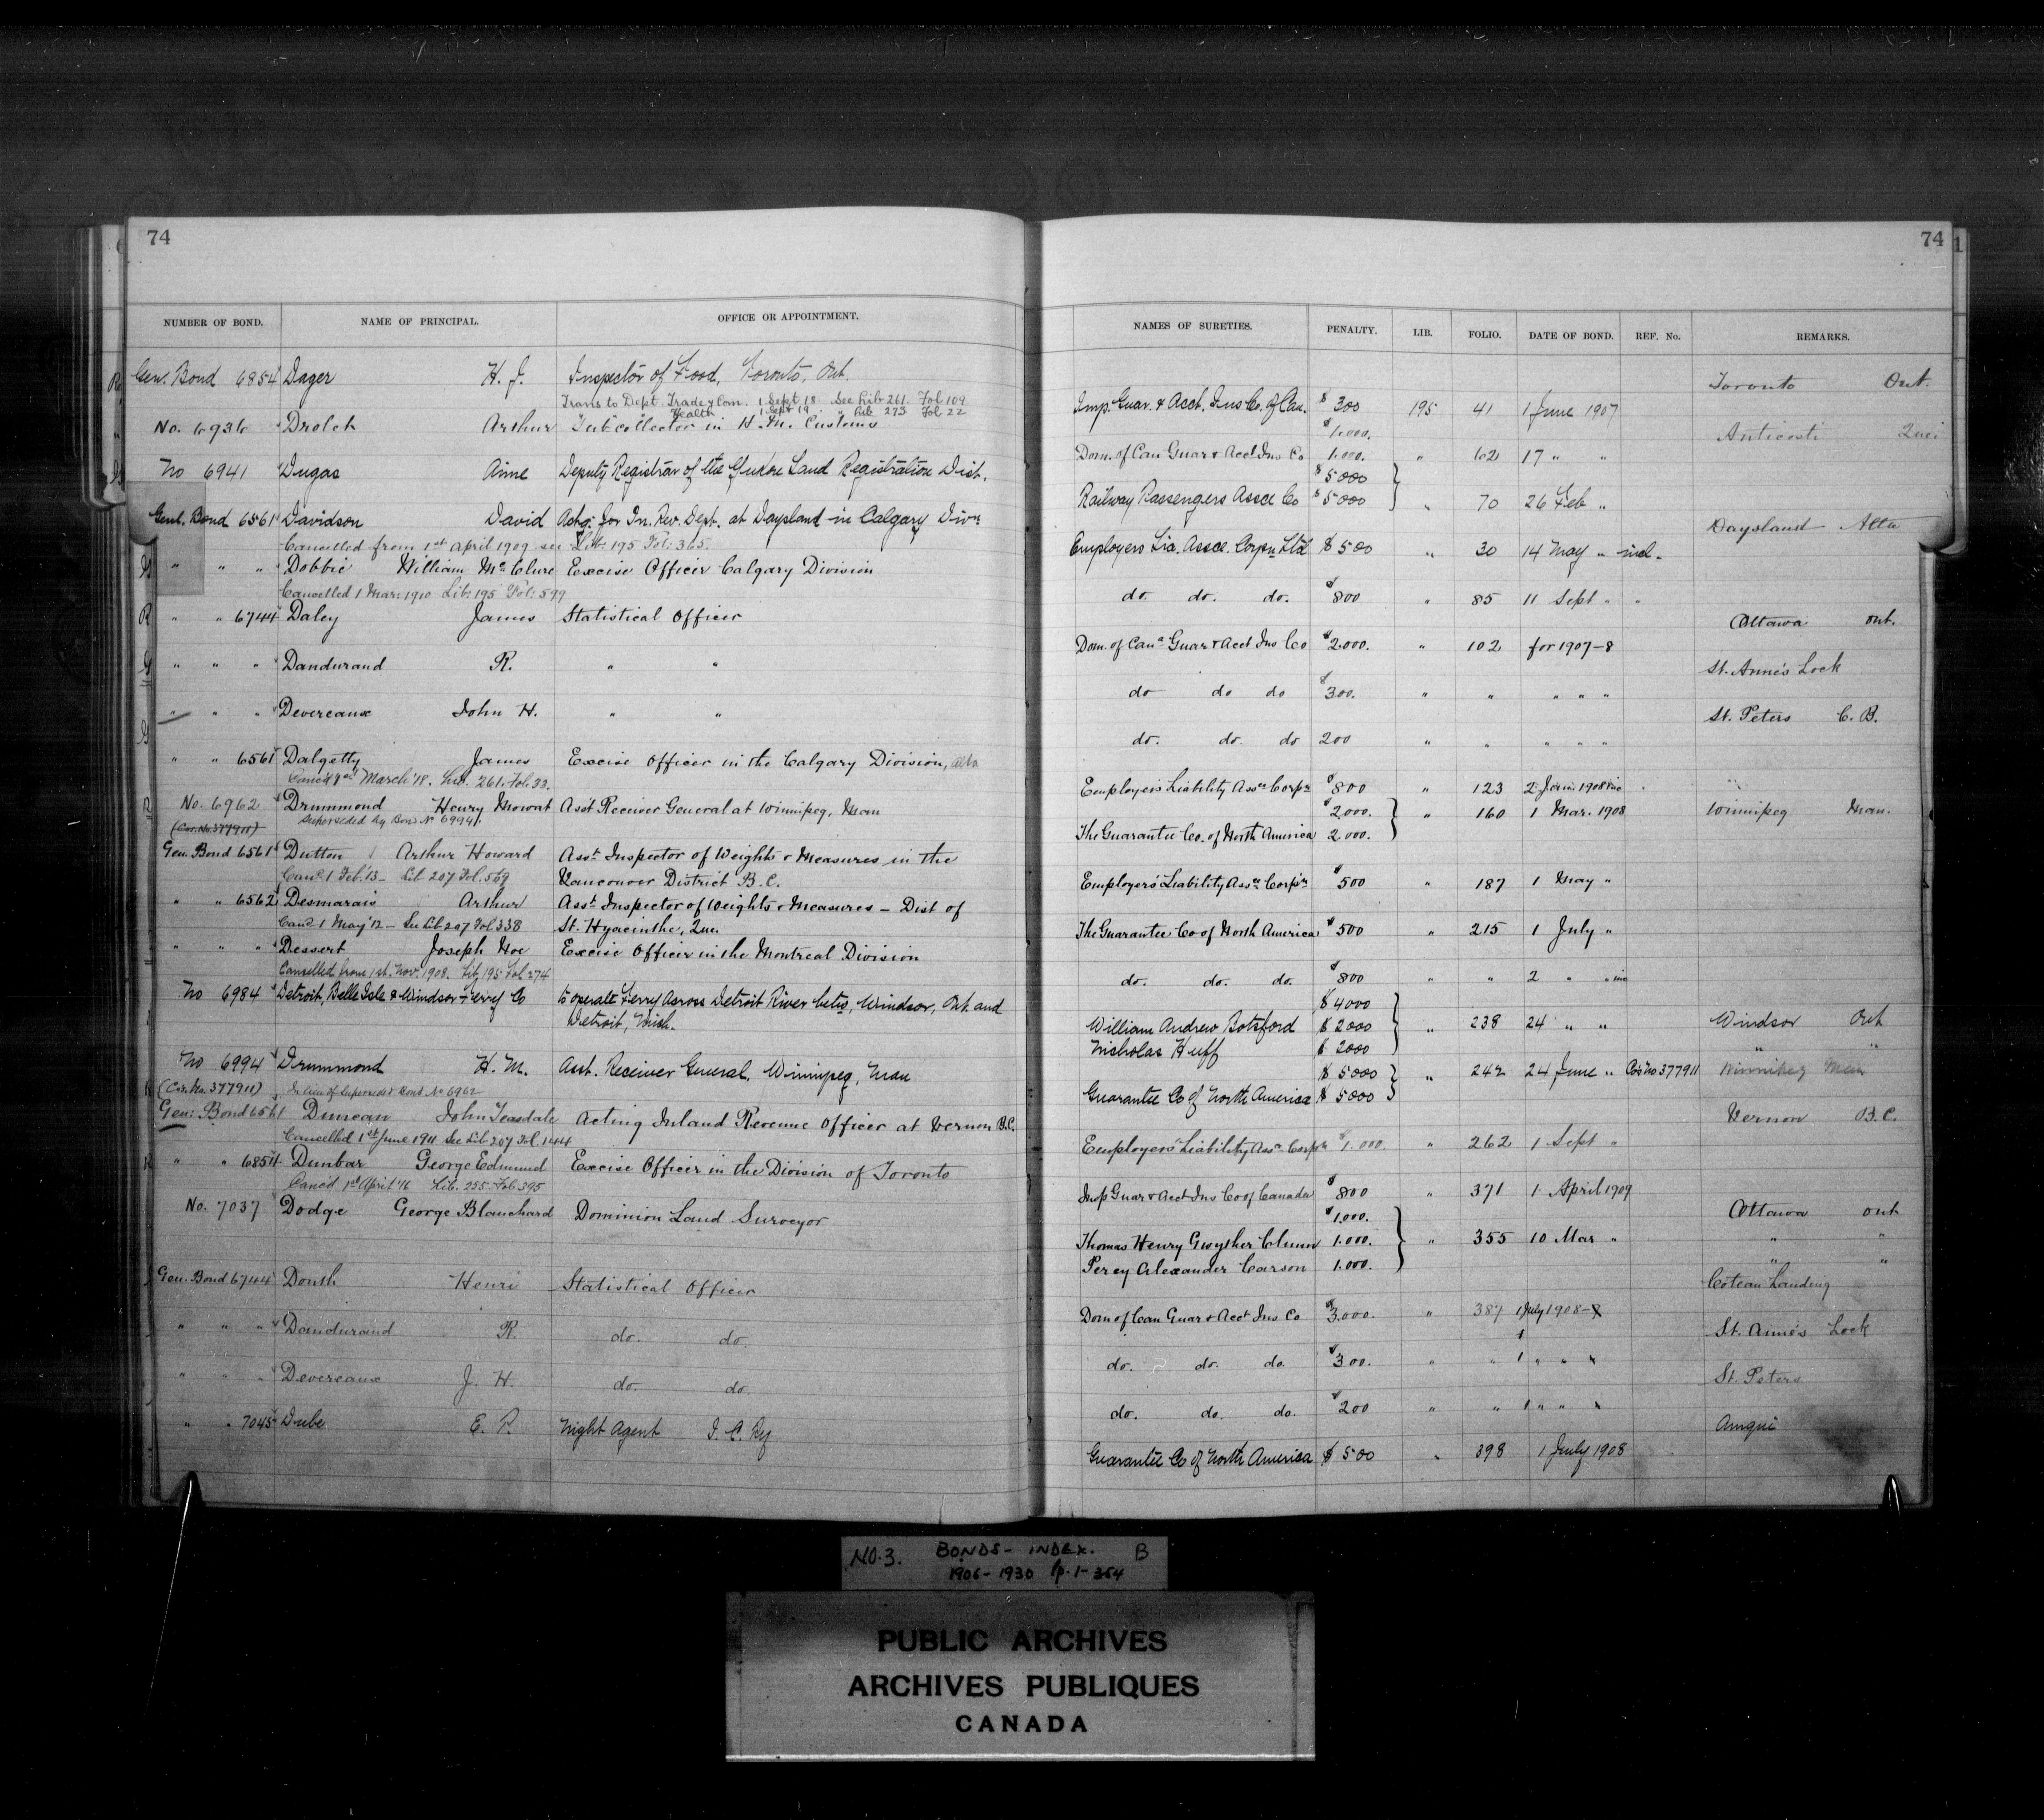 74
NUMBER OF BOND. NAME OF PRINCIPAL. OFFICE OR APPOINTMENT.
Genl. Bond 6854 Dager H. J. Inspector of Food, Toronto, Ont.
Trans to Dept Trade & Com. 1 Sept 18 See Lib 261 Fol 109
Health 1 Sept 19 " Lib 273 Fol 22
No. 6936 Drolet Arthur Sub-collector in H. M. Customs
No 6941 Dugas Aime Deputy Registrar of the Yukon Land Registration Dist.
Genl. Bond 6561 Davidson David Actg: for In. Rev. Dept. at Daysland in Calgary Divn
Cancelled from 1st April 1909 see Lib: 195 Fol: 365.
" " " Dobbie William McClure Excise Officer Calgary Division
Cancelled 1 Mar: 1910 Lib: 195 Fol: 599
" " 6744 Daley James Statistical Officer
" " " Dandurand R. " "
" " " Devereaux John H. " "
" " 6561 Dalgetty James Excise Officer in the Calgary Division, Alta
Canc'd 1st March '18. Lib. 261. Fol. 33.
No. 6962 Drummond Henry Mowat Asst Receiver General at Winnipeg, Man
Superseded by Bond No 6994.
(Cor. No. 377911)
Gen. Bond 6561 Dutton Arthur Howard Asst Inspector of Weights & Measures in the
Canc'd 1 Feb. '13 – Lib 207 Fol. 569 Vancouver District B.C.
" " 6562 Desmarais Arthur Asst Inspector of Weights & Measures – Dist of
Canc'd 1 May '12 – See Lib 207 Fol 338 St. Hyacinthe, Que.
" " " Dessert Joseph Noe Excise Officer in the Montreal Division
Cancelled from 1st. Nov. 1908. Lib 195 Fol 274
No 6984 Detroit, Belle Isle & Windsor Ferry Co to operate Ferry Across Detroit River betw, Windsor, Ont. and
Detroit, Mich.
No 6994 Drummond H. M. Asst. Receiver General, Winnipeg, Man
(Cor. No. 377911) In lieu of Superseded Bond No 6962
Gen: Bond 6561 Duncan John Teasdale Acting Inland Revenue Officer at Vernon B.C.
Cancelled 1st June 1911 See Lib 207 Fol. 144
" " 6854 Dunbar George Edmund Excise Officer in the Division of Toronto
Canc'd 1st April '16 Lib. 255 Fol 395
No. 7037 Dodge George Blanchard Dominion Land Surveyor
Gen. Bond 6744 Henri Statistical Officer
" " " Dandurand R. do. do.
" " " Devereaux J. H. do. do.
" " 7045 Dube E. P. Night Agent I. C. Ry
74
NAMES OF SURETIES. PENALTY. LIB. FOLIO. DATE OF BOND. REF. No. REMARKS.
Toronto Ont.
Imp. Guar. & Acct. Ins Co. of Can. $ 300 195 41 1 June 1907
$1.000. Anticosti Que
Dom. of Can Guar & Acct Ins Co 1.000. " 62 17 " "
$ 5000
Railway Passengers Assce Co $ 5000 " 70 26 Feb "
Daysland Alta
Employers Lia. Assce. Corpn Ltd $ 500 " 30 14 May " incl.
do. do. do. $800 " 85 11 Sept " "
Ottawa Ont.
Dom. of Cana Guar & Acct Ins Co $2.000. " 102 for 1907-8
St. Anne's Lock
do do do $300. " " " " "
St. Peters C. B.
do. do. do 200 " " " " "
Employers Liability Assce Corpn $800 " 123 2 Jan. 1908 inc
$2,000. " 160 1 Mar. 1908 Winnipeg Man.
The Guarantee Co. of North America 2.000.
Employers' Liability Assce Corp'n $500 " 187 1 May "
The Guarantee Co of North America $500 " 215 1 July "
do. do. do. $800 " " 2 " " inc
$ 4000
William Andrew Botsford $ 2000 " 238 24 " " Windsor Ont
Nicholas Huff $ 2000 " "
$ 5000 " 242 24 June " Cor. No 377911 Winnipeg Man
Guarantee Co of North America $ 5000
Vernon B.C.
Employers' Liability Assn Corpn $1.000. " 262 1 Sept "
Imp Guar & Acct Ins Co of Canada $800 " 371 1 April 1909
$1.000. Ottawa Ont
Thomas Henry Gwyther Clunn 1.000. " 355 10 Mar " " "
Percy Alexander Carson 1.000. " "
Coteau Landing
Dom of Can Guar & Acct Ins Co $3.000. " 387 1 July 1908-8
St. Anne's Lock
do. do. do. $300. " " 1 " "
St. Peters
do. do. do. $200 " " 1 " "
Amqui
Guarantee Co of North America $ 500 " 398 1 July 1908
NO. 3. BONDS - INDEX. B
1906 - 1930 p. 1 - 354
PUBLIC ARCHIVES
ARCHIVES PUBLIQUES
CANADA